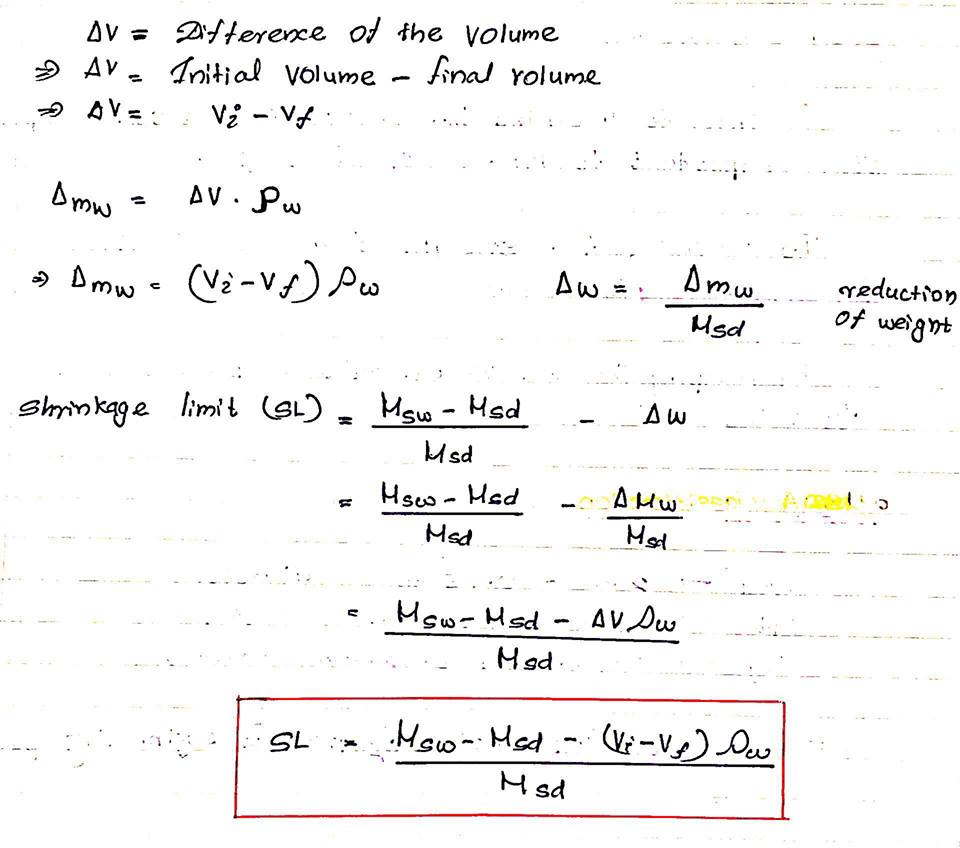 ΔV = Difference of the volume
⇒ ΔV = Initial volume - final volume
⇒ ΔV = Vi - Vf
Δmw = ΔV . ρw
⇒ Δmw = (Vi-Vf) ρw Δw = Δmw / Msd reduction of weight
Shrinkage limit (SL) = Msw - Msd / Msd - Δw
= Msw - Msd / Msd - ΔMw / Msd
= Msw - Msd - ΔV ρw / Msd
SL = Msw - Msd - (Vi-Vf) ρw / Msd